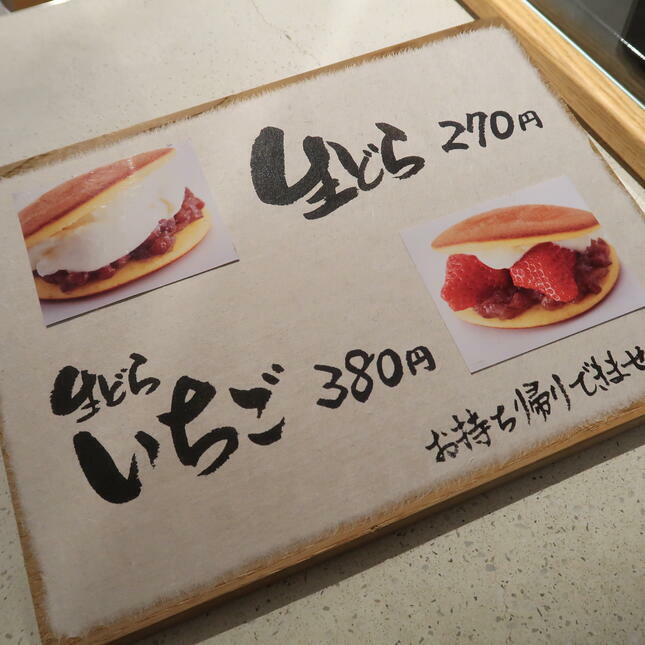 生どら 270円
生どら
いちご 380円
お持ち帰りできませ